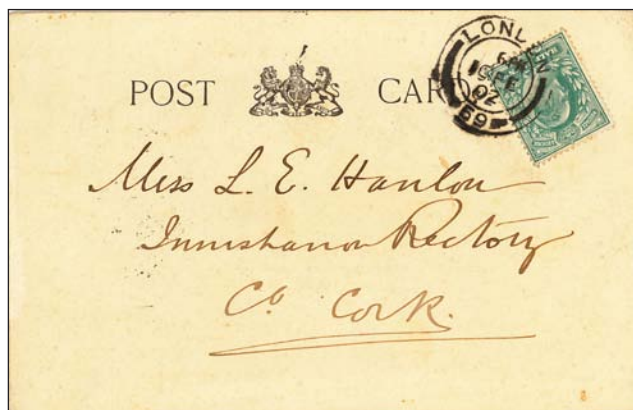 POST CARD
LONDON
6 PM
FE
02
59
Miss L. E. Hanlon
Innishanon Rectory
Co Cork.